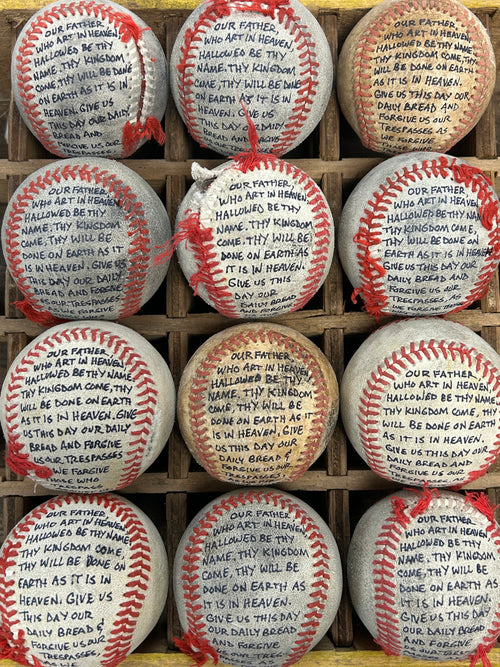 OUR FATHER,
WHO ART IN HEAVEN,
HALLOWED BE THY
NAME. THY KINGDOM
COME, THY WILL BE DONE
ON EARTH AS IT IS IN
HEAVEN. GIVE US
THIS DAY OUR DAILY
BREAD AND
FORGIVE US OUR
TRESPASSES
OUR FATHER,
WHO ART IN HEAVEN,
HALLOWED BE THY
NAME. THY KINGDOM
COME, THY WILL BE DONE
ON EARTH AS IT IS IN
HEAVEN. GIVE US
THIS DAY OUR
DAILY BREAD AND
OUR FATHER,
WHO ART IN HEAVEN,
HALLOWED BE THY
NAME. THY KINGDOM
COME, THY WILL BE DONE
ON EARTH
AS IT IS IN HEAVEN.
GIVE US THIS DAY OUR
DAILY BREAD AND
FORGIVE US OUR
TRESPASSES AS
THOSE WHO
OUR FATHER,
WHO ART IN HEAVEN,
HALLOWED BE THY
NAME. THY KINGDOM
COME. THY WILL BE
DONE ON EARTH AS IT
IS IN HEAVEN. GIVE US
THIS DAY OUR DAILY
BREAD AND FORGIVE
US OUR TRESPASSES
OUR FATHER,
WHO ART IN HEAVEN,
HALLOWED BE THY
NAME. THY KINGDOM
COME, THY WILL BE
DONE ON EARTH AS
IT IS IN HEAVEN.
GIVE US THIS
DAY OUR
DAILY BREAD
OUR FATHER,
WHO ART IN HEAVEN,
HALLOWED BE THY NAME.
THY KINGDOM COME,
THY WILL BE DONE ON
EARTH AS IT IS IN HEAVEN
GIVE US THIS DAY OUR
DAILY BREAD AND
FORGIVE US OUR
TRESPASSES, AS
OUR FATHER,
WHO ART IN HEAVEN,
HALLOWED BE THY NAME
THY KINGDOM COME, THY
WILL BE DONE ON EARTH
AS IT IS IN HEAVEN. GIVE
US THIS DAY OUR DAILY
BREAD AND FORGIVE
US OUR TRESPASSES
WE FORGIVE
THOSE WHO
OUR FATHER,
WHO ART IN HEAVEN,
HALLOWED BE THY
NAME. THY KINGDOM
COME, THY WILL BE
DONE ON EARTH AS IT
IS IN HEAVEN. GIVE
US THIS DAY OUR
DAILY BREAD &
FORGIVE US OUR
OUR FATHER,
WHO ART IN HEAVEN,
HALLOWED BE THY NAME.
THY KINGDOM COME, THY
WILL BE DONE ON EARTH
AS IT IS IN HEAVEN. GIVE
US THIS DAY OUR
DAILY BREAD AND
OUR FATHER,
WHO ART IN HEAVEN,
HALLOWED BE THY NAME
THY KINGDOM COME,
THY WILL BE DONE ON
EARTH AS IT IS IN
HEAVEN. GIVE US
THIS DAY OUR
DAILY BREAD &
FORGIVE US OUR
TRESPASSES, AS
WE
OUR FATHER,
WHO ART IN HEAVEN,
HALLOWED BE THY
NAME. THY KINGDOM
COME, THY WILL BE
DONE ON EARTH AS IT
IS IN HEAVEN. GIVE
US THIS DAY OUR
DAILY BREAD AND
FORGIVE US
OUR TRES-
OUR FATHER,
WHO ART IN
HEAVEN, HALLOWED BE
THY NAME. THY KINGDOM
COME, THY WILL BE DONE
ON EARTH AS IT IS IN
HEAVEN. GIVE US
THIS DAY OUR
DAILY BREAD AND
FORGIVE US OUR
TRESPASSES